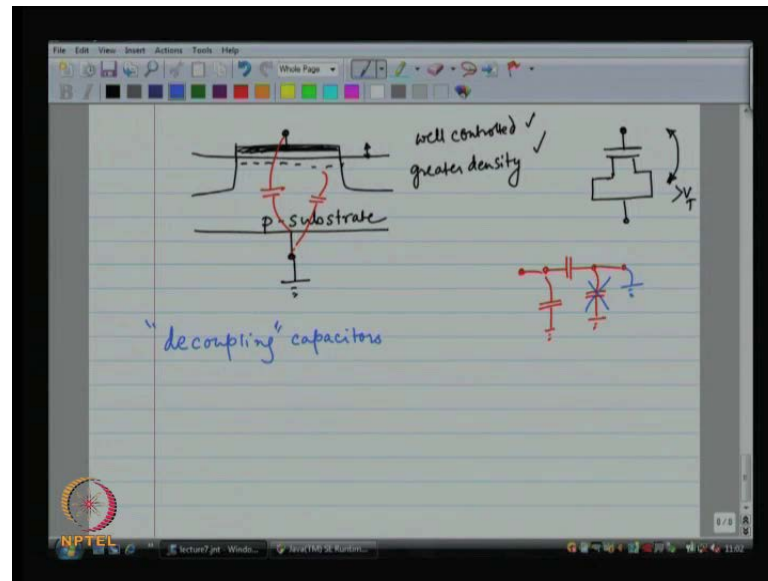 File Edit View Insert Actions Tools Help
Whole Page
well controlled ✓
greater density ✓
p-substrate
>V_T
"decoupling" capacitors
NPTEL
8/8
lecture7.jnt - Windo...
Java(TM) SE Runtim...
11:02